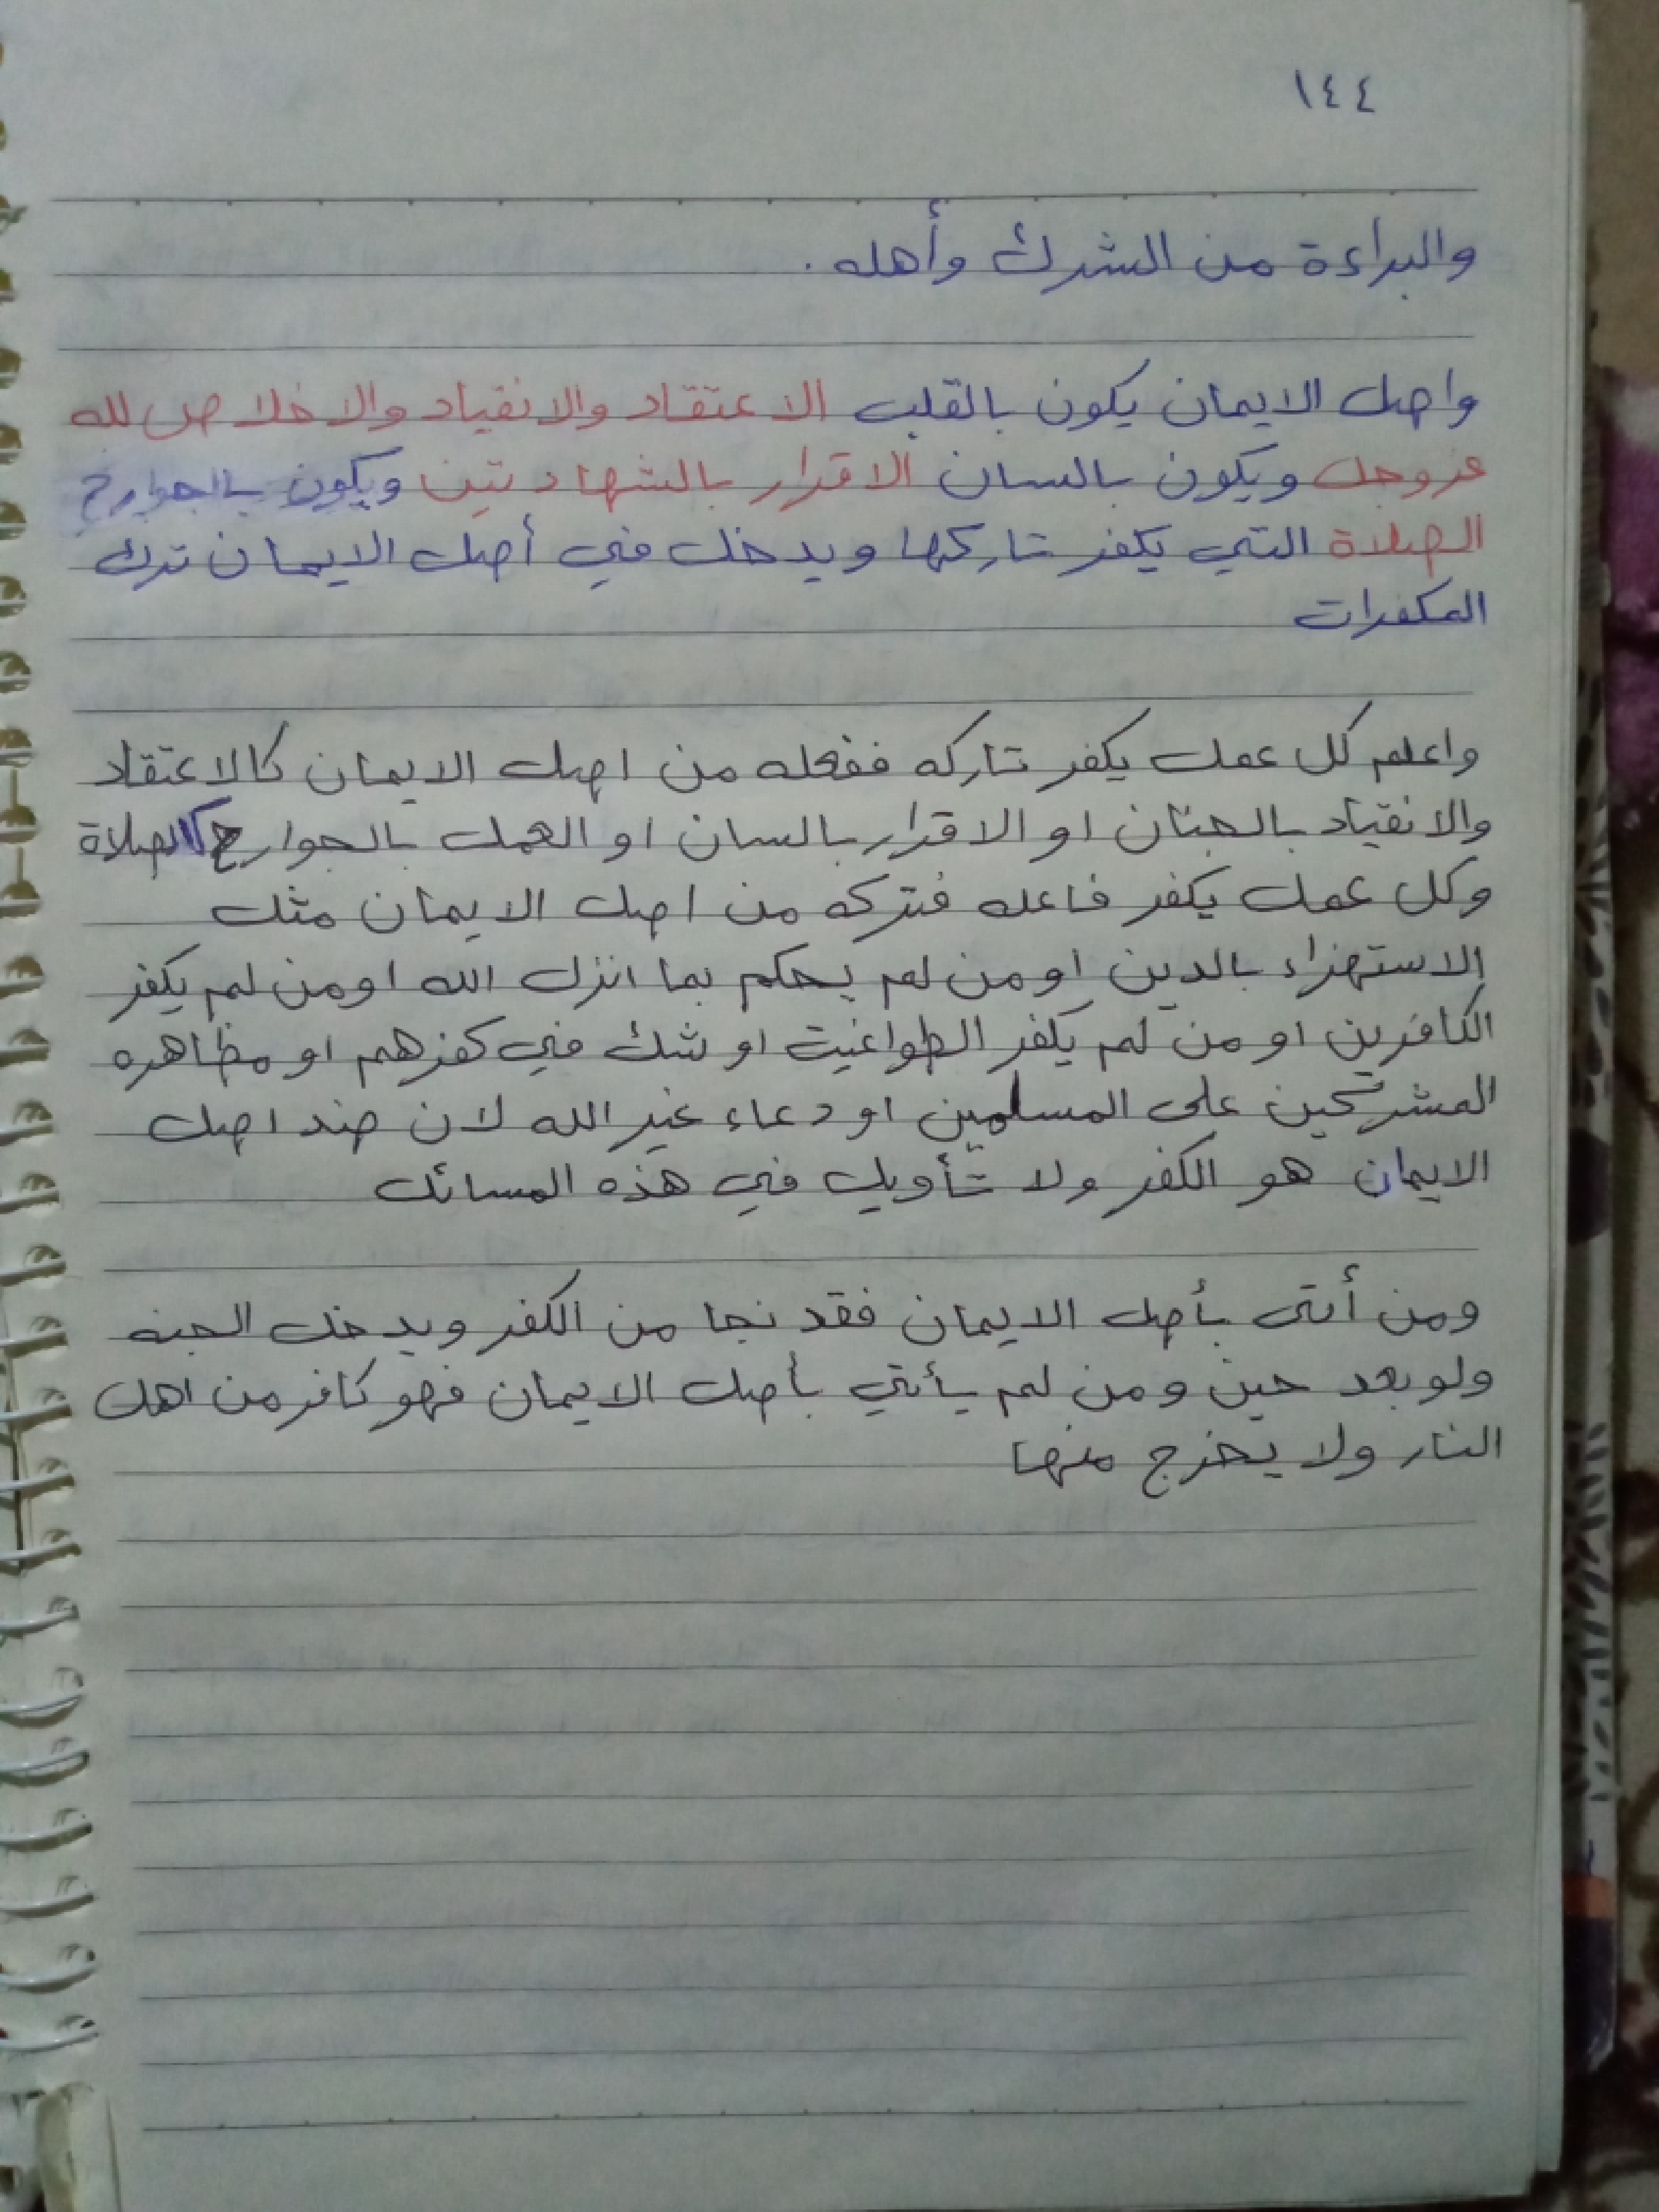 ١٤٤
والبراءة من الشرك وأهله .
واصل الايمان يكون بالقلب الاعتقاد والانقياد والاخلاص لله
عزوجل ويكون بالسان الاقرار بالشهادتين ويكون بالجوارح
الصلاة التي يكفر تاركها ويدخل في أصل الايمان ترك
المكفرات
واعلم كل عمل يكفر تاركه ففعله من اصل الايمان كالاعتقاد
والانقياد بالجنان او الاقرار بالسان او العمل بالجوارح كالصلاة
وكل عمل يكفر فاعله فتركه من اصل الايمان مثل
الاستهزاء بالدين او من لم يحكم بما انزل الله او من لم يكفر
الكافرين او من لم يكفر الطواغيت او شك في كفرهم او مظاهره
المشركين على المسلمين او دعاء غير الله لان ضد اصل
الايمان هو الكفر ولا تأويل في هذه المسائل
ومن أتى بأصل الايمان فقد نجا من الكفر ويدخل الجنه
ولو بعد حين ومن لم يأتي بأصل الايمان فهو كافر من اهل
النار ولا يخرج منها